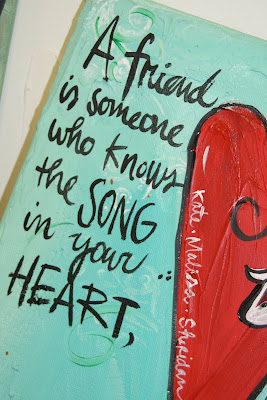 A friend
is someone
who knows
the SONG
in your
HEART,
Kate · Malissa · Sheridan